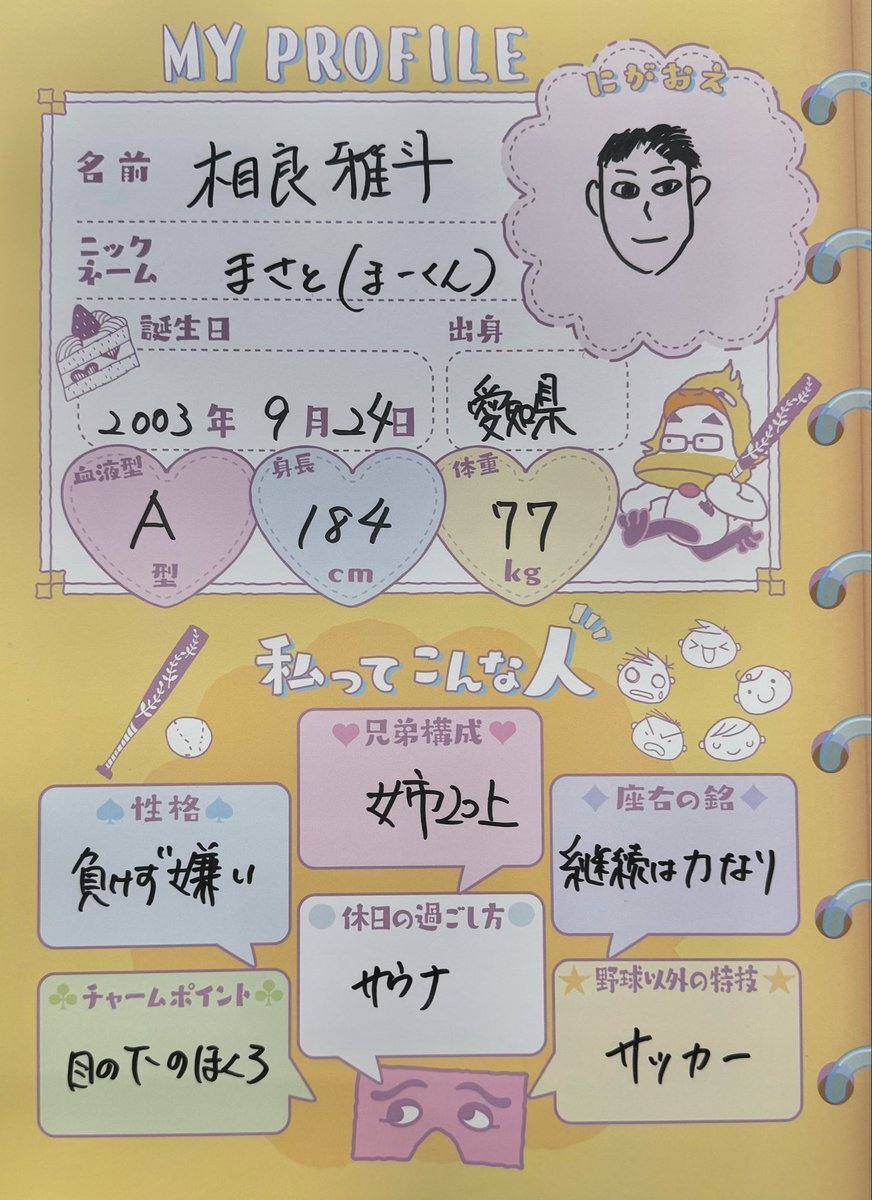 MY PROFILE
にがおえ
名前 相良雅斗
ニックネーム まさと(まーくん)
誕生日
2003年 9月24日
出身
愛知県
血液型
A
型
身長
184
cm
体重
77
kg
私ってこんな人
兄弟構成
姉2つ上
性格
負けず嫌い
座右の銘
継続は力なり
休日の過ごし方
サウナ
チャームポイント
目の下のほくろ
野球以外の特技
サッカー